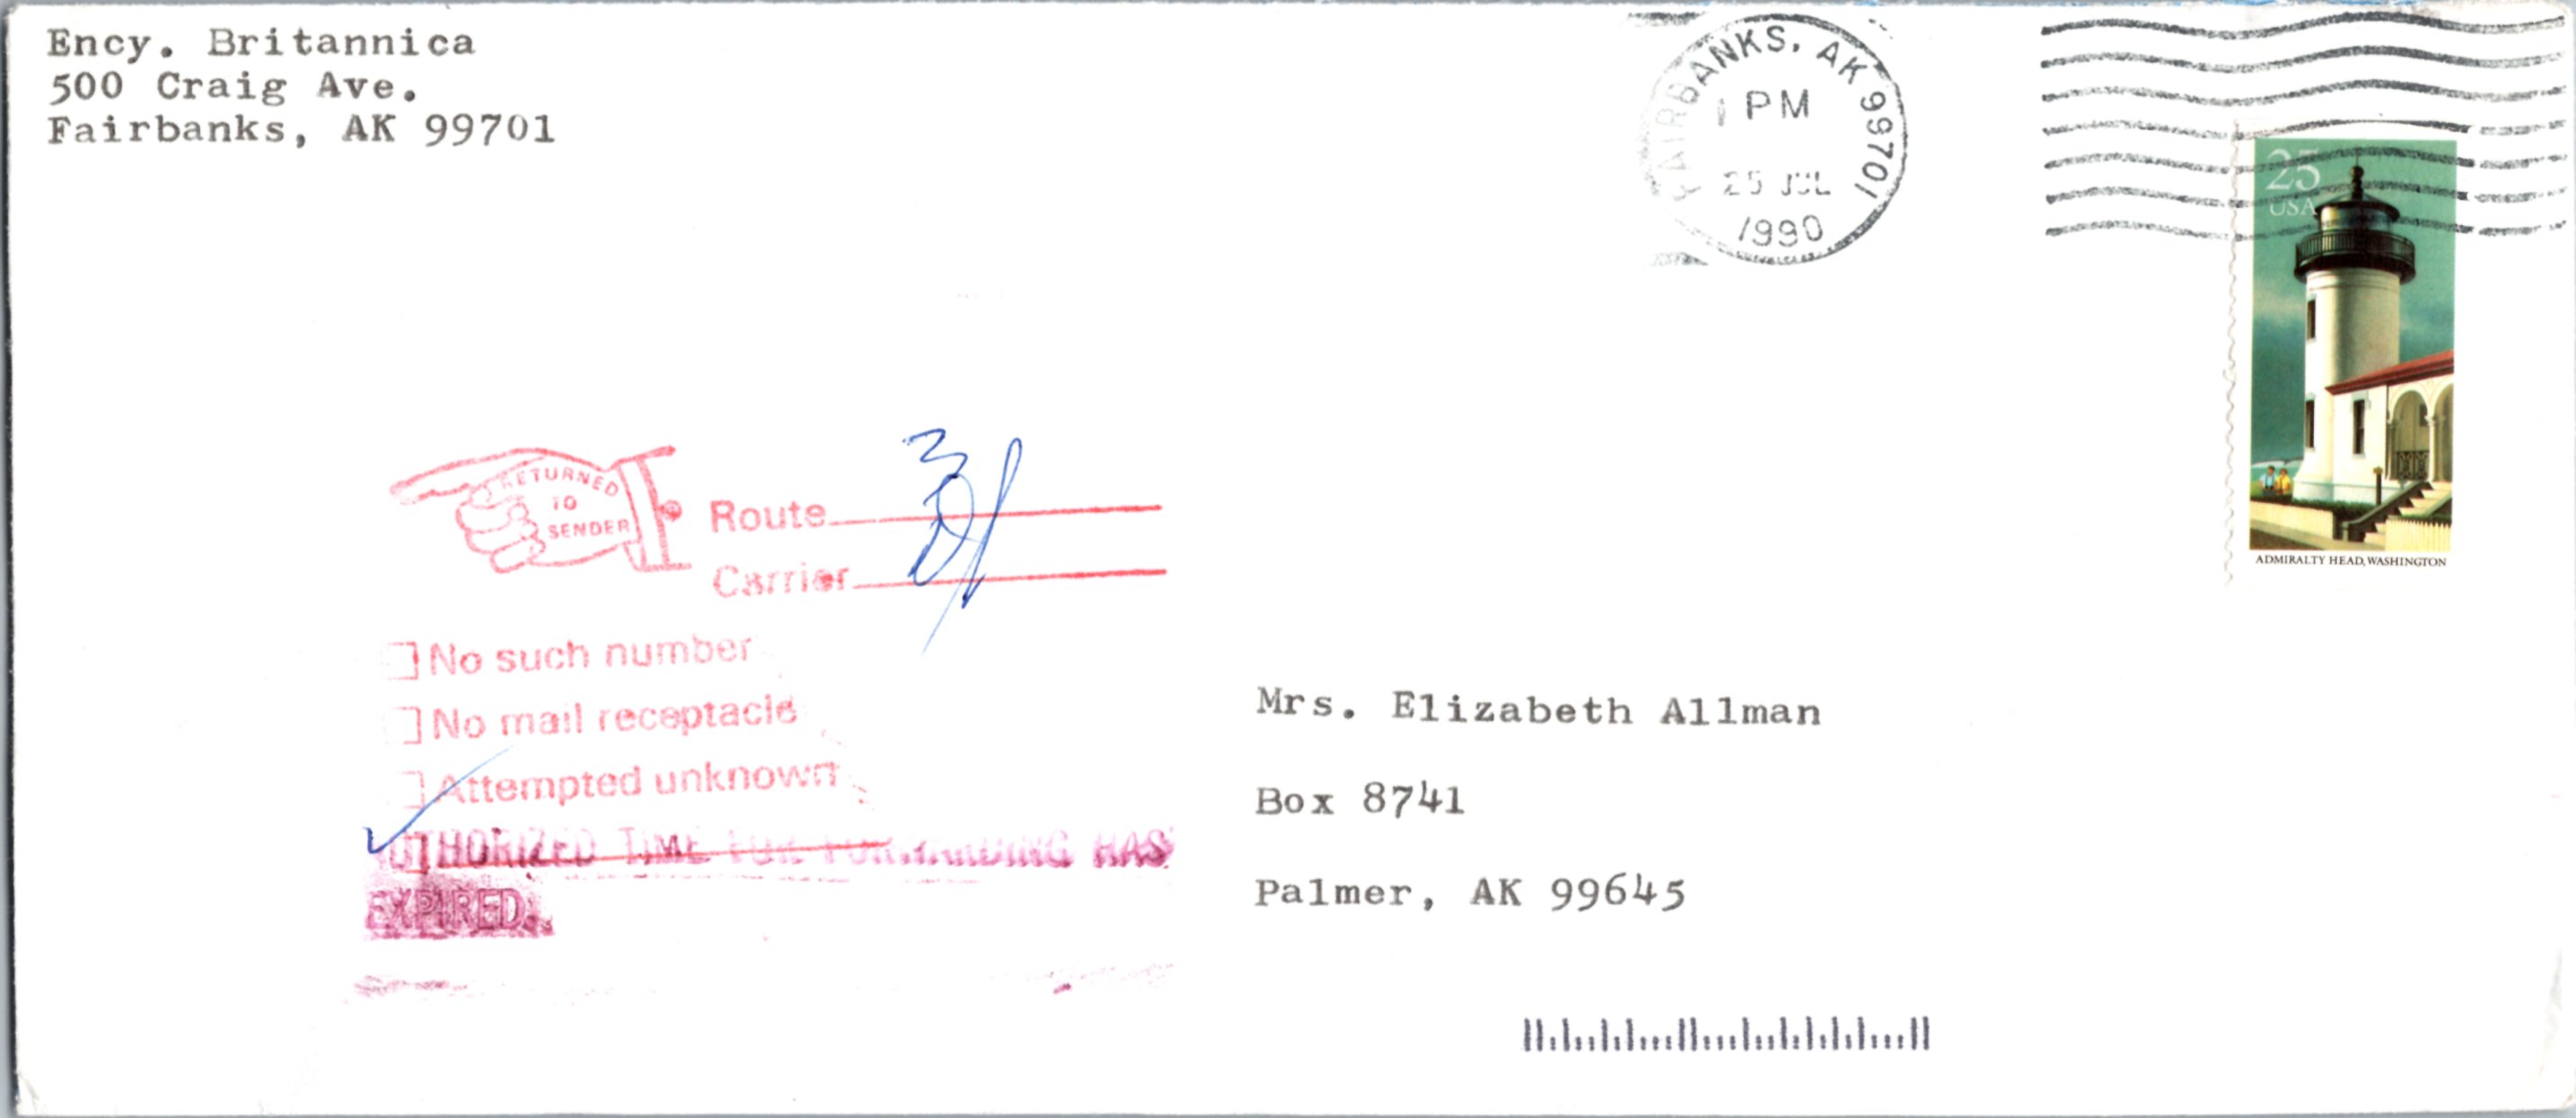 Ency. Britannica
500 Craig Ave.
Fairbanks, AK 99701
FAIRBANKS, AK 99701
PM
25 JUL
1990
25
USA
ADMIRALTY HEAD, WASHINGTON
RETURNED
TO
SENDER
Route
Carrier
No such number
No mail receptacle
Attempted unknown
AUTHORIZED TIME FOR FORWARDING HAS
EXPIRED.
Mrs. Elizabeth Allman
Box 8741
Palmer, AK 99645